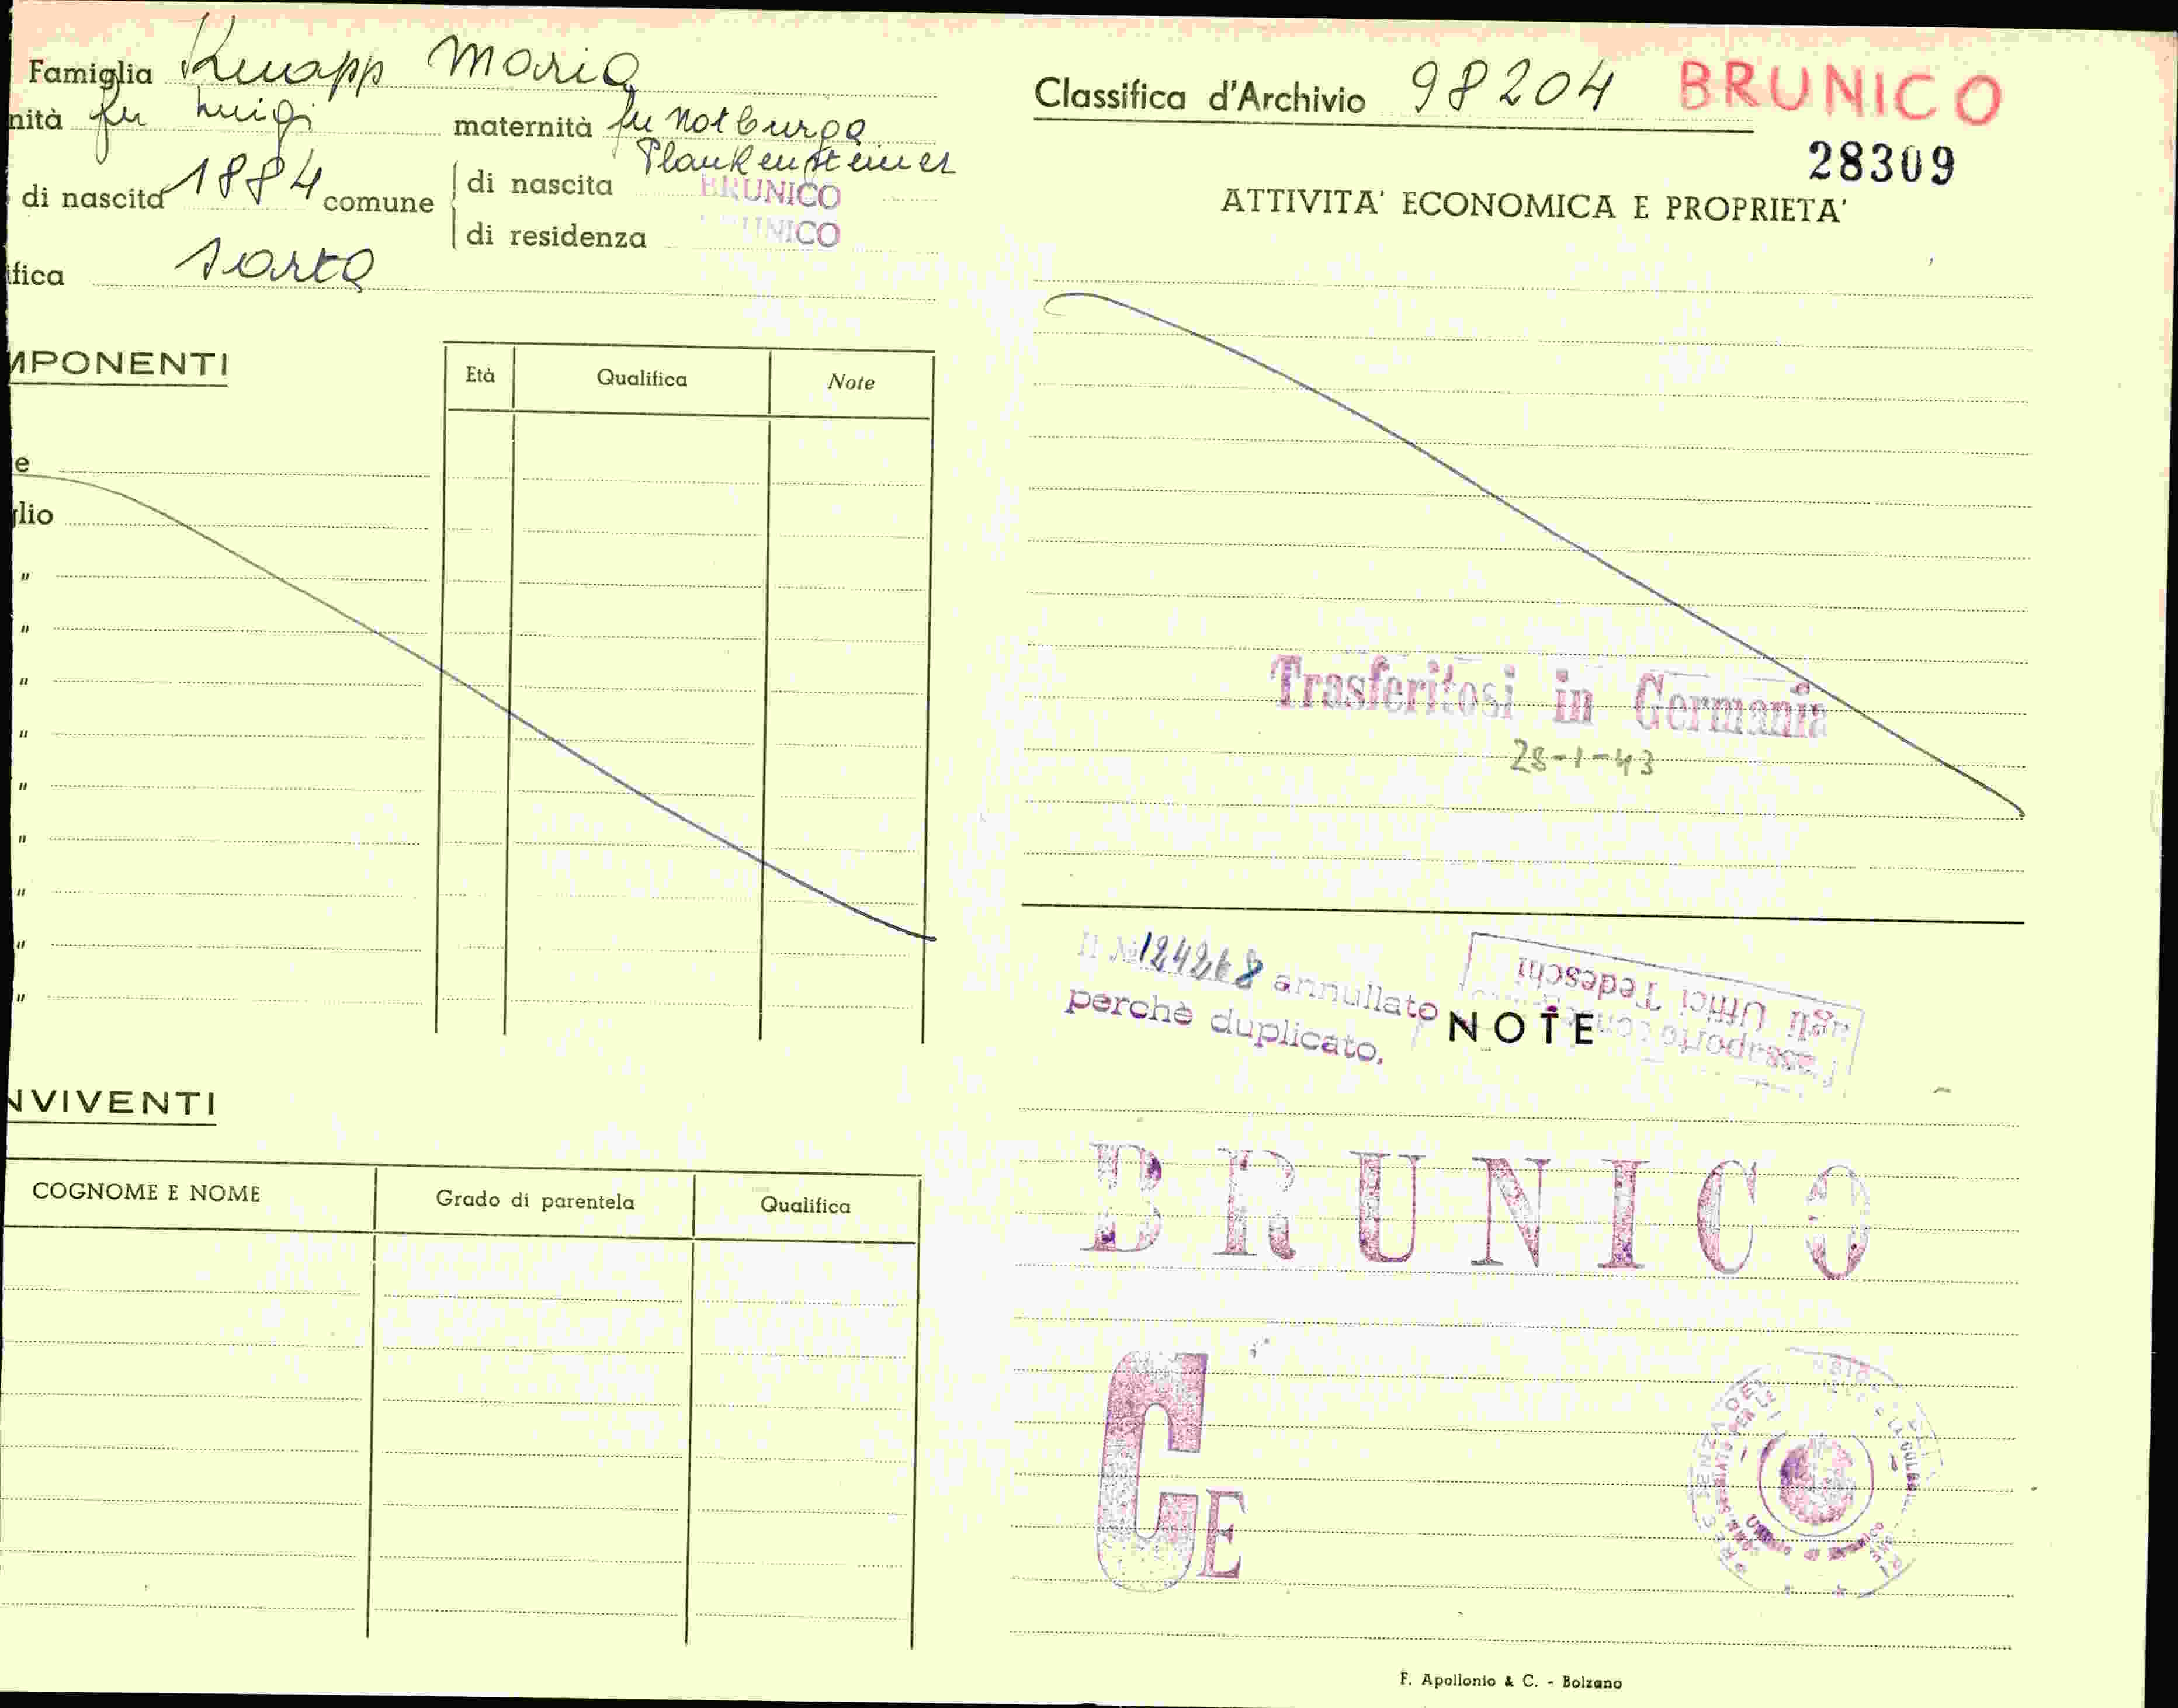 Famiglia Knapp Maria
nità fu Luigi maternità fu Notburga
Plankensteiner
di nascita 1884 comune di nascita BRUNICO
di residenza UNICO
ifica sarta
MPONENTI
Età Qualifica Note
e
lio
"
"
"
"
"
"
"
"
"
NVIVENTI
COGNOME E NOME Grado di parentela Qualifica
Classifica d'Archivio 98204 BRUNICO
28309
ATTIVITA' ECONOMICA E PROPRIETA'
Trasferitosi in Germania
28-1-43
Il N 124268 annullato
perchè duplicato.
agli Uffici Tedeschi
NOTE
BRUNICO
CE
F. Apollonio & C. - Bolzano